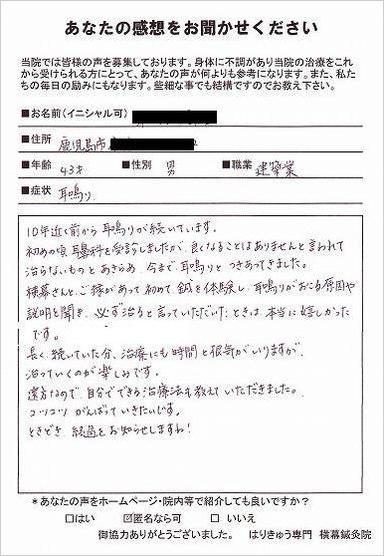 あなたの感想をお聞かせください
当院では皆様の声を募集しております。身体に不調があり当院の治療をこれ
から受けられる方にとって、あなたの声が何よりも参考になります。また、私た
ちの毎日の励みにもなります。些細な事でも結構ですのでお教え下さい。
■お名前(イニシャル可)
■住所 鹿児島市
■年齢 43才 ■性別 男 ■職業 建築業
■症状 耳鳴り
10年近く前から耳鳴りが続いています。
初めの頃 耳鼻科を受診しましたが、良くなることはありませんと言われて
治らないものとあきらめ、今まで耳鳴りとつきあってきました。
横幕さんと、ご縁があって初めて鍼を体験し、耳鳴りがおこる原因や
説明を聞き、必ず治ると言っていただけたときは、本当に嬉しかった
です。
長く続いていた分、治療にも時間と根気がいりますが、
治っていくのが楽しみです。
遠方なので、自分でできる治療法も教えていただきました。
コツコツ がんばっていきたいです。
ときどき 経過をお知らせしますね!
*あなたの声をホームページ・院内等で紹介しても良いですか?
□はい ☑匿名なら可 □いいえ
御協力ありがとうございました。 はりきゅう専門 横幕鍼灸院